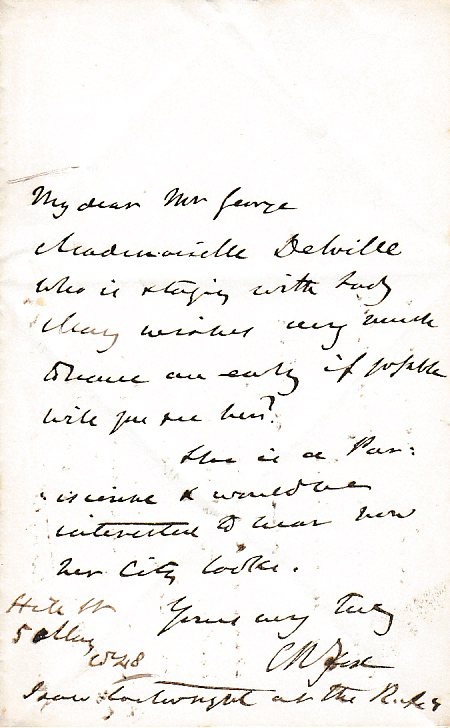 My dear Mr George
Mademoiselle Delville
who is staying with Lady
Mary wishes very much
to have an early if possible
will you see her?
She is a Par:
isienne & would be
interested to hear how
her City looks.
Yours very truly
5 May
1848
I saw Cartwright at the